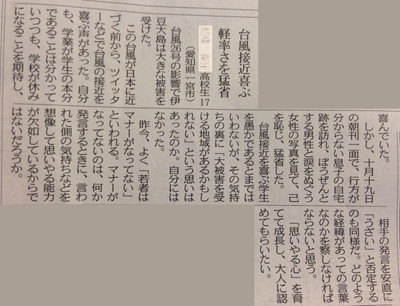 台風接近喜ぶ
軽率さを猛省
高校生 17
(愛知県一宮市)
台風26号の影響で伊
豆大島は大きな被害を
受けた。
この台風が日本に近
づく前から、ツイッタ
ーなどで台風の接近を
喜ぶ声があった。自分
も、学業が学生の本分
であることは分かって
いつつも、学校が休み
になることを期待し、
喜んでいた。
しかし、十月十九日
の朝刊一面で、行方が
分からない息子の自宅
跡を訪れ、ぼうぜんと
する男性と涙をぬぐう
女性の写真を見て、己
を恥じ、猛省した。
台風接近を喜ぶ学生
を愚かであるとまでは
いわないが、その気持
ちの裏に「大被害を受
ける地域があるかもし
れない」という思いは
あったのか。自分には
なかった。
昨今、よく「若者は
マナーがなってない」
といわれる。マナーが
なってないのは、何か
発言するときに、言わ
れた側の気持ちなどを
想像して思いやる能力
が欠如しているからで
はないだろうか。
相手の発言を安直に
「うざい」と否定する
のも同様だ。どのよう
な経緯があっての言葉
なのかを察しなければ
ならないと思う。
「思いやる心」を育
てて成長し、大人に認
めてもらいたい。